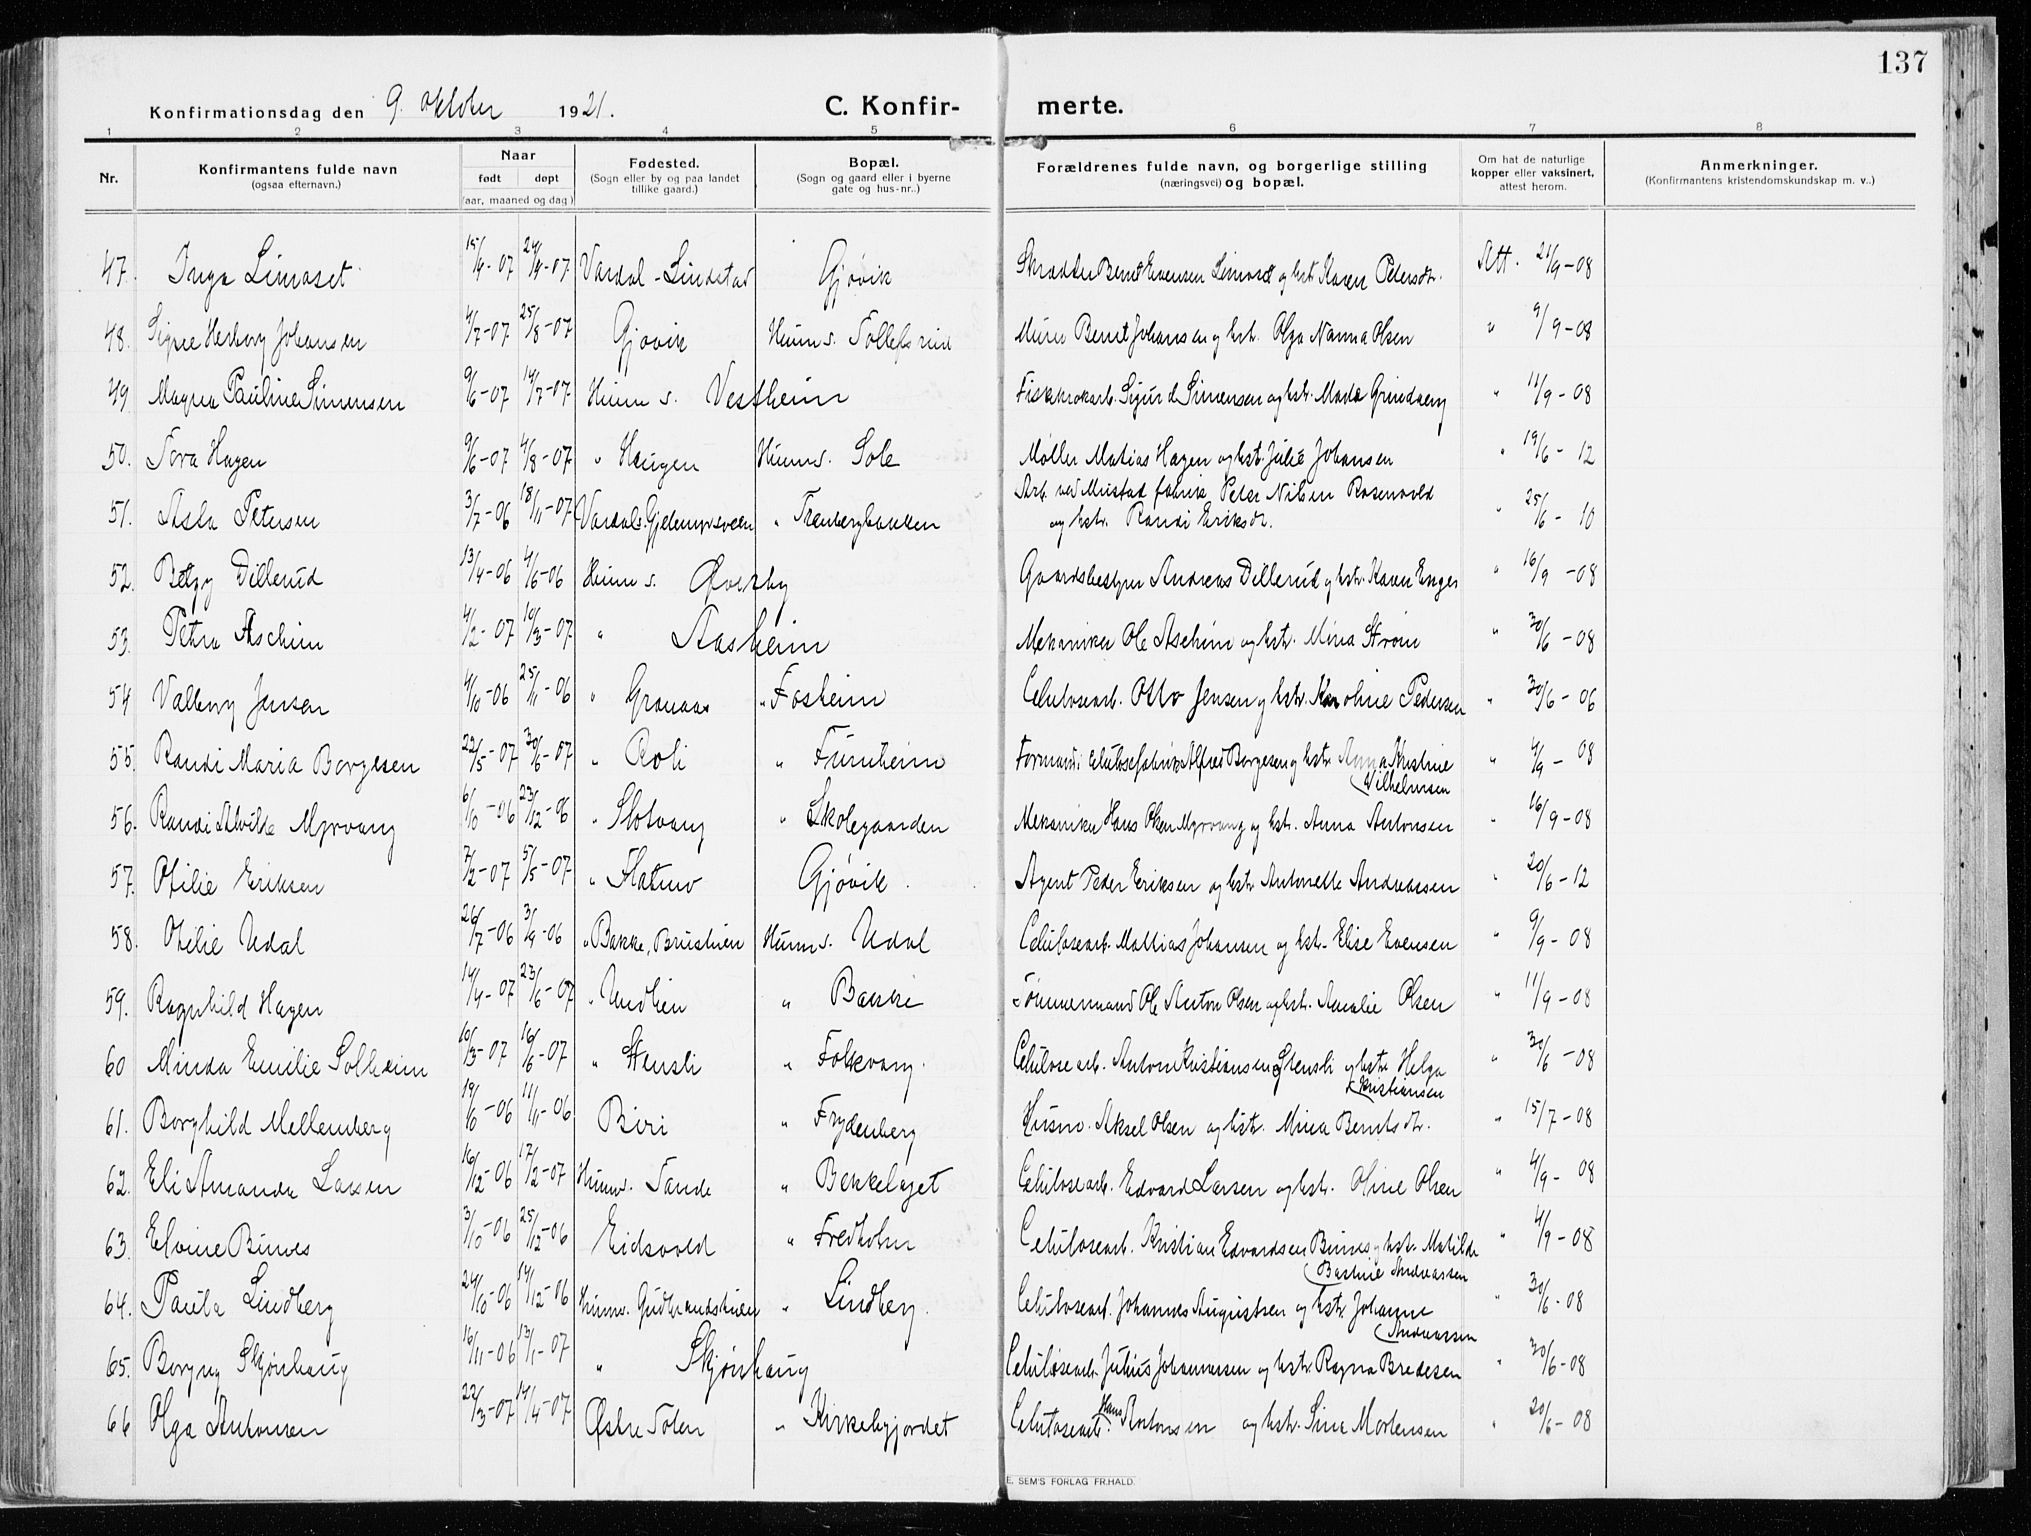 137
Konfirmationsdag den 9. oktober 1921.
C. Konfir- merte.
1 2 3 4 5 6 7 8
Nr.
Konfirmantens fulde navn
(ogsaa efternavn.)
Naar
født døpt
(aar, maaned og dag)
Fødested.
(Sogn eller by og paa landet
tillike gaard.)
Bopæl.
(Sogn og gaard eller i byerne
gate og hus-nr..)
Forældrenes fulde navn, og borgerlige stilling
(næringsvei) og bopæl.
Om hat de naturlige
kopper eller vaksinert,
attest herom.
Anmerkninger.
(Konfirmantens kristendomskundskap m. v..)
47. Inga Limoset 15/4-07 24/4-07 Vardal - Lindstad Gjøvik Skrædder Bernt Evensen Limoset og hst. Karen Petersdtr. Att. 21/9-08
48. Signe Herborg Johansen 4/7-07 25/8-07 Gjøvik Hunns. Tollefsrud Murer Bernt Johansen og hst. Olga Nanna Olsen " 9/9-08
49 Magna Pauline Simensen 9/6-07 14/7-07 Hunns. Vestheim Fiskkrokarb. Sigurd Simensen og hst. Moda Grindberg " 11/9-08
50. Tora Hagen 9/6-07 4/8-07 " Haugen Hunns. Sole Møller Matias Hagen og hst. Julie Johansen " 19/6-12
51. Asla Petersen 3/7-06 18/11-07 Vardals. Gjelemyrsveen " Tranbergbakken Arb. ved Mustad fabrik Peter Nilsen Rosenvold
og hst. Randi Eriksdtr. " 25/6-10
52. Betzy Dillerud 13/4-06 4/6-06 Hunns. Øverby Gaardsbestyrer Andreas Dillerud og hst. Karen Enger " 16/9-08
53. Petra Aschim 4/2-07 10/3-07 " Aasheim Mekaniker Ole Aschim og hst. Mina Strøm " 30/6-08
54 Valborg Jensen 4/10-06 25/11-06 " Granaas " Fosheim Celulosearb. Otto Jensen og hst. Karoline Pedersen " 30/6-06
55. Randi Maria Borgesen 22/5-07 30/6-07 " Roli " Furuheim Formand i Celulosefabrik Alfred Borgesen og hst. Anna Kristine
Wilhelmsen " 4/9-08
56. Randi Alvilde Myrvang 6/10-06 23/12-06 " Slotvang " Skolegaarden Mekaniker Hans Olsen Myrvang og hst. Anna Antonsen " 16/9-08
57. Otilie Eriksen 7/2-07 5/5-07 " Flatmo Gjøvik. Agent Peder Eriksen og hst. Antonette Andreassen " 20/6-12
58. Otilie Udal 26/7-06 3/9-06 " Bakke, Brustuen Hunns. Udal Celulosearb. Mattias Johansen og hst. Elise Evensen " 9/9-08
59. Ragnhild Hagen 14/4-07 23/6-07 " Undlien " Bakke Tømmermand Ole Anton Olsen og hst. Amalie Olsen " 11/9-08
60 Minda Emilie Solheim 10/3-07 16/6-07 " Stensli " Folkvang. Celulosearb. Anton Kristiansen Stensli og hst. Helga
Kristiansen " 30/6-08
61. Borghild Mellemberg 19/6-06 11/11-06 Biri " Frydenberg Husm. Aksel Olsen og hst. Mina Berntsdtr. " 15/7-08
62. Eli Amanda Larsen 16/12-06 17/2-07 Hunns. Sande " Bekkelaget Celulosearb. Edvard Larsen og hst. Oline Olsen " 4/9-08
63. Elvine Burnes 3/10-06 25/12-06 Eidsvold " Fredholm Celulosearb. Kristian Edvardsen Burnes og hst. Matilde
Bastine Andreassen " 4/9-08
64. Paula Lindberg 24/10-06 14/12-06 Hunns. Gudbrandshuen " Lindberg. Celulosearb. Johannes Augustsen og hst. Johanne
Andreassen " 30/6-08
65. Borgny Skjønhaug 16/11-06 13/1-07 " Skjønhaug Celulosearb. Julius Johannessen og hst. Ragna Bredesen " 30/6-08
66 Olga Antonsen 22/3-07 14/4-07 Østre Toten " Kirkebyjordet Celulosearb. Hans Antonsen og hst. Sina Mortensen " 20/6-08
E. SEM'S FORLAG FR.HALD.